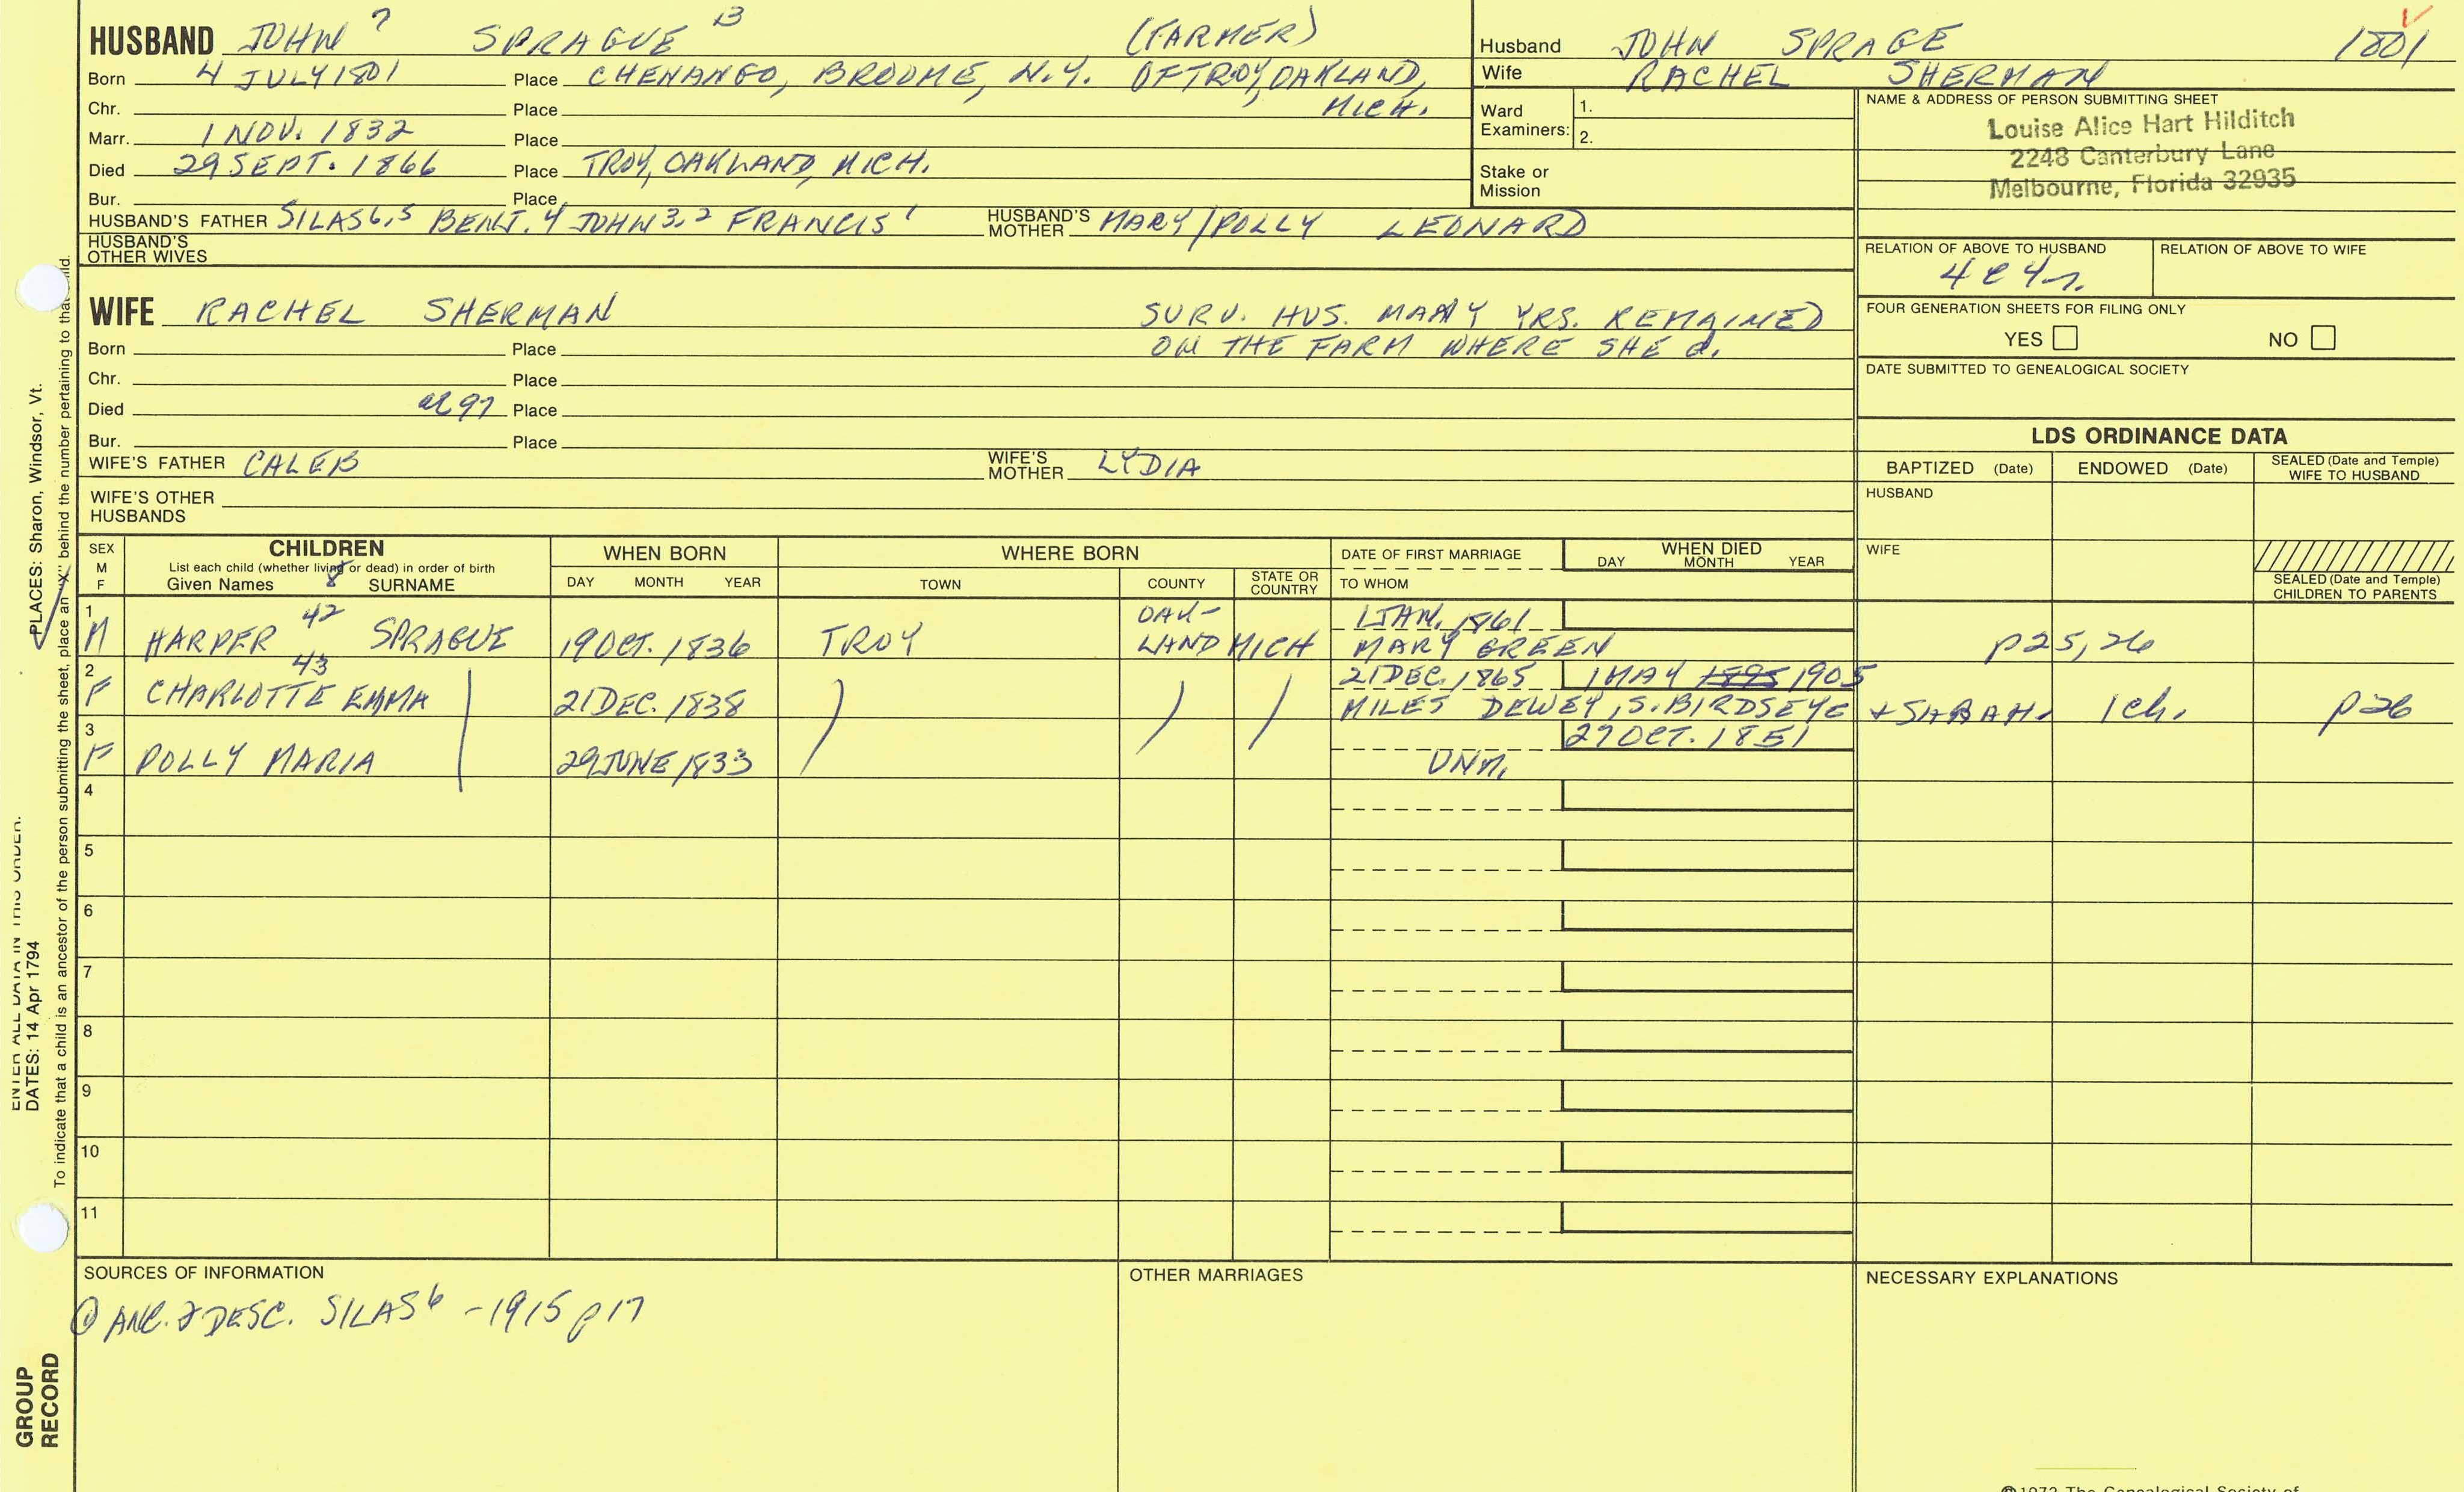 HUSBAND JOHN 7 SPRAGUE 13 (FARMER)
Born 4 JULY 1801 Place CHENANGO, BROOME, N.Y. OF TROY, OAKLAND,
Chr. Place MICH.
Marr. 1 NOV. 1832 Place
Died 29 SEPT. 1866 Place TROY, OAKLAND, MICH.
Bur. Place
HUSBAND'S FATHER SILAS 6,5 BENJ. 4 JOHN 3,2 FRANCIS 1 HUSBAND'S MOTHER MARY/POLLY LEONARD
HUSBAND'S OTHER WIVES
Husband JOHN SPRAGE 1801
Wife RACHEL SHERMAN
Ward Examiners: 1.
2.
Stake or Mission
NAME & ADDRESS OF PERSON SUBMITTING SHEET
Louise Alice Hart Hilditch
2248 Canterbury Lane
Melbourne, Florida 32935
RELATION OF ABOVE TO HUSBAND RELATION OF ABOVE TO WIFE
4C4r.
FOUR GENERATION SHEETS FOR FILING ONLY
YES NO
DATE SUBMITTED TO GENEALOGICAL SOCIETY
WIFE RACHEL SHERMAN SURV. HUS. MANY YRS. REMAINED
Born Place ON THE FARM WHERE SHE d.
Chr. Place
Died ae 97 Place
Bur. Place
WIFE'S FATHER CALEB WIFE'S MOTHER LYDIA
WIFE'S OTHER HUSBANDS
LDS ORDINANCE DATA
BAPTIZED (Date) ENDOWED (Date) SEALED (Date and Temple) WIFE TO HUSBAND
HUSBAND
WIFE
SEALED (Date and Temple) CHILDREN TO PARENTS
SEX M F
CHILDREN
List each child (whether living or dead) in order of birth
Given Names 8 SURNAME
WHEN BORN
DAY MONTH YEAR
WHERE BORN
TOWN COUNTY STATE OR COUNTRY
DATE OF FIRST MARRIAGE
TO WHOM
WHEN DIED
DAY MONTH YEAR
1 42 OAK- 1 JAN. 1861
M HARPER SPRAGUE 19 OCT. 1836 TROY LAND MICH MARY GREEN p25,26
2 43 21 DEC. 1865 1 MAY 1895 1905
F CHARLOTTE EMMA 21 DEC. 1838 MILES DEWEY, S. BIRDSEYE + SARAH. 1 ch. p26
3 27 OCT. 1851
F POLLY MARIA 29 JUNE 1833 UNM.
4
5
6
7
8
9
10
11
SOURCES OF INFORMATION
① ANC. & DESC. SILAS 6 - 1915 p17
OTHER MARRIAGES
NECESSARY EXPLANATIONS
PLACES: Sharon, Windsor, Vt.
ENTER ALL DATA IN THIS ORDER:
DATES: 14 Apr 1794
To indicate that a child is an ancestor of the person submitting the sheet, place an "x" behind the number pertaining to that child.
GROUP
RECORD
©1972 The Genealogical Society of